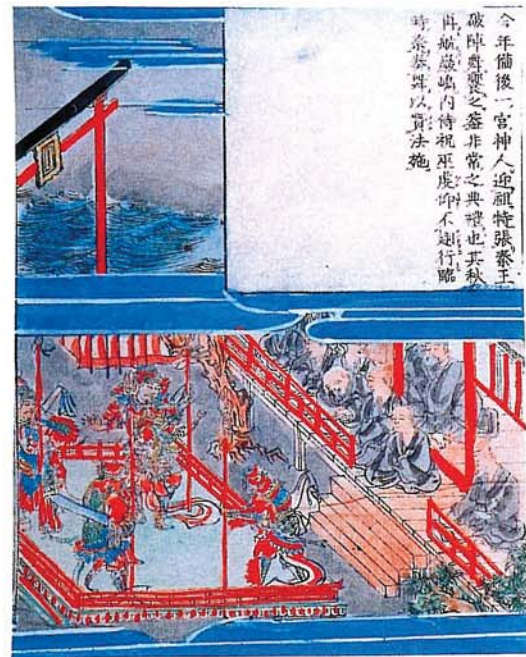 今年備後一宮神人迎祖特張秦王
破陣舞饗之蓋非常之典禮也其秋
再航嚴嶋内侍祝巫虔仰不違行臨
時祭奏舞以資法施